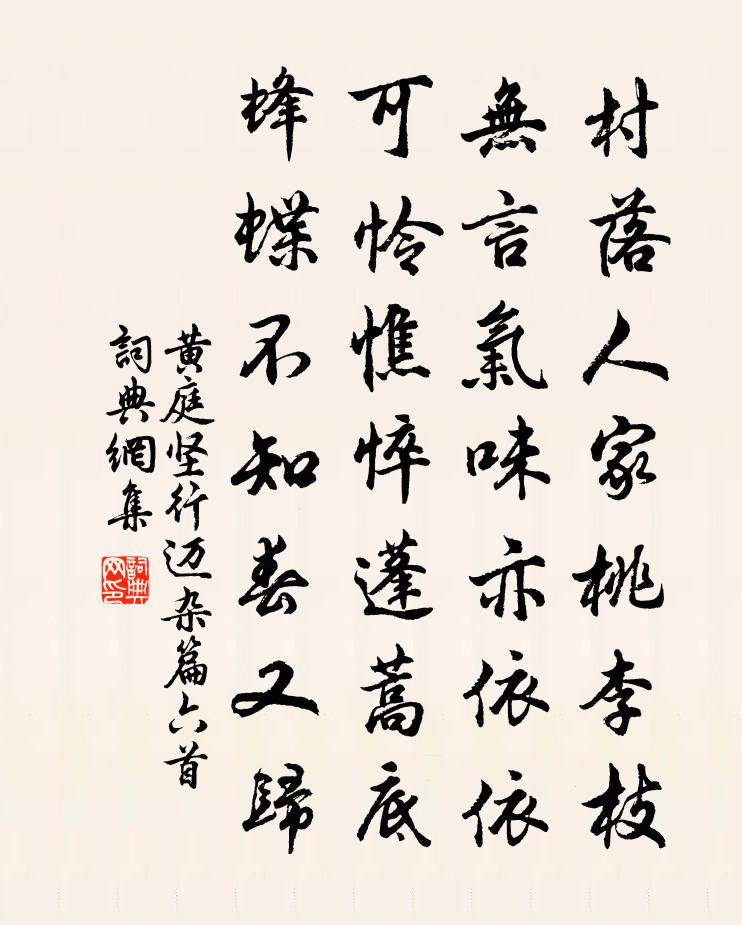 村落人家桃李枝
無言氣味亦依依
可怜憔悴蓬蒿底
蜂蝶不知春又歸
黄庭坚行迈杂篇六首
詞典網集
詞典网印